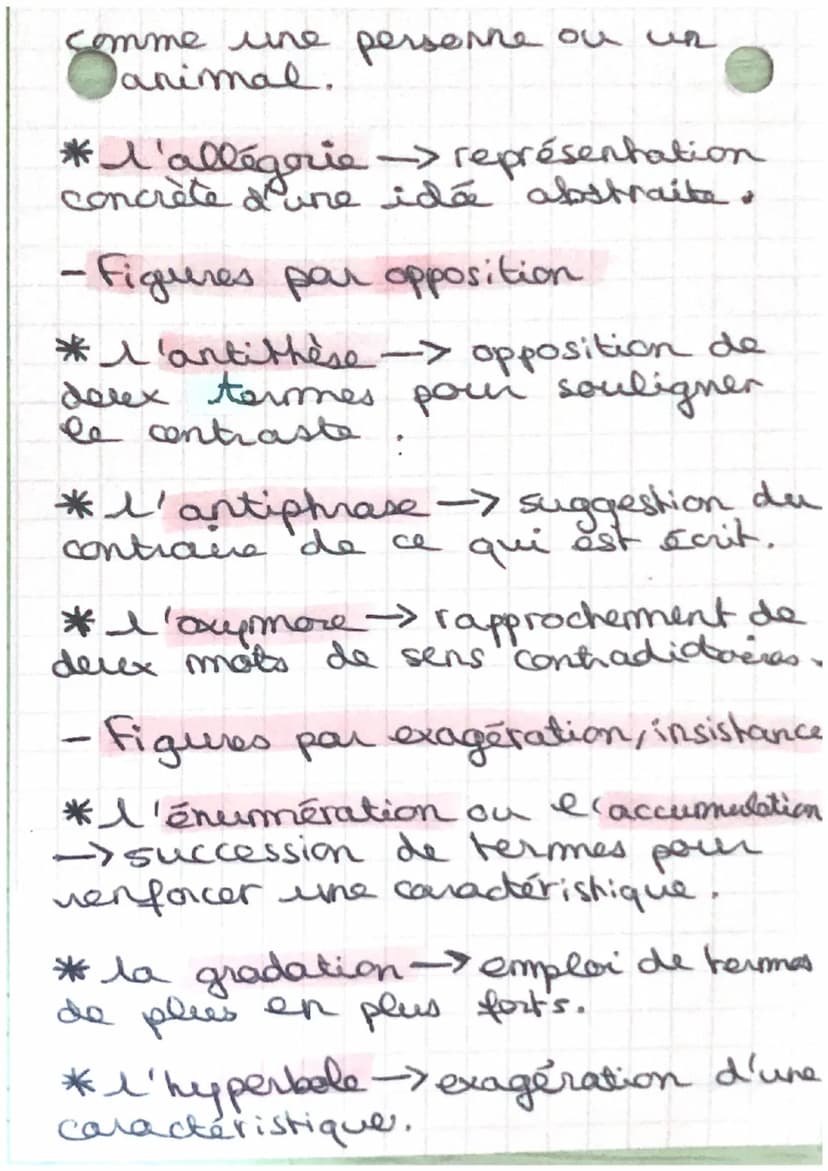 comme une personne ou un
animal.
* l'allégorie → représentation
concrète d'une idée abstraite.
- Figures par opposition
* l'antithèse → opposition de
deux termes pour souligner
le contraste.
* l'antiphrase → suggestion du
contraire de ce qui est écrit.
* l'oxymore → rapprochement de
deux mots de sens contradictoires.
- Figures par exagération, insistance
* l'énumération ou l'accumulation
→ succession de termes pour
renforcer une caractéristique.
* la gradation → emploi de termes
de plus en plus forts.
* l'hyperbole → exagération d'une
caractéristique.